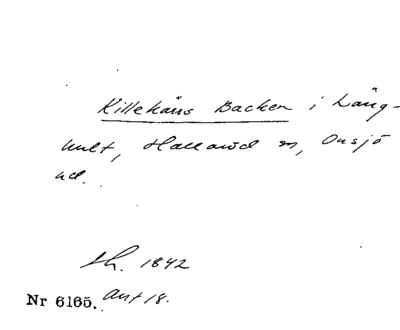 Killehäus Backen i Lång-
hult, Hallarød sn, Onsjö
hd.
Th. 1842
Nr 6165. Ant 18.